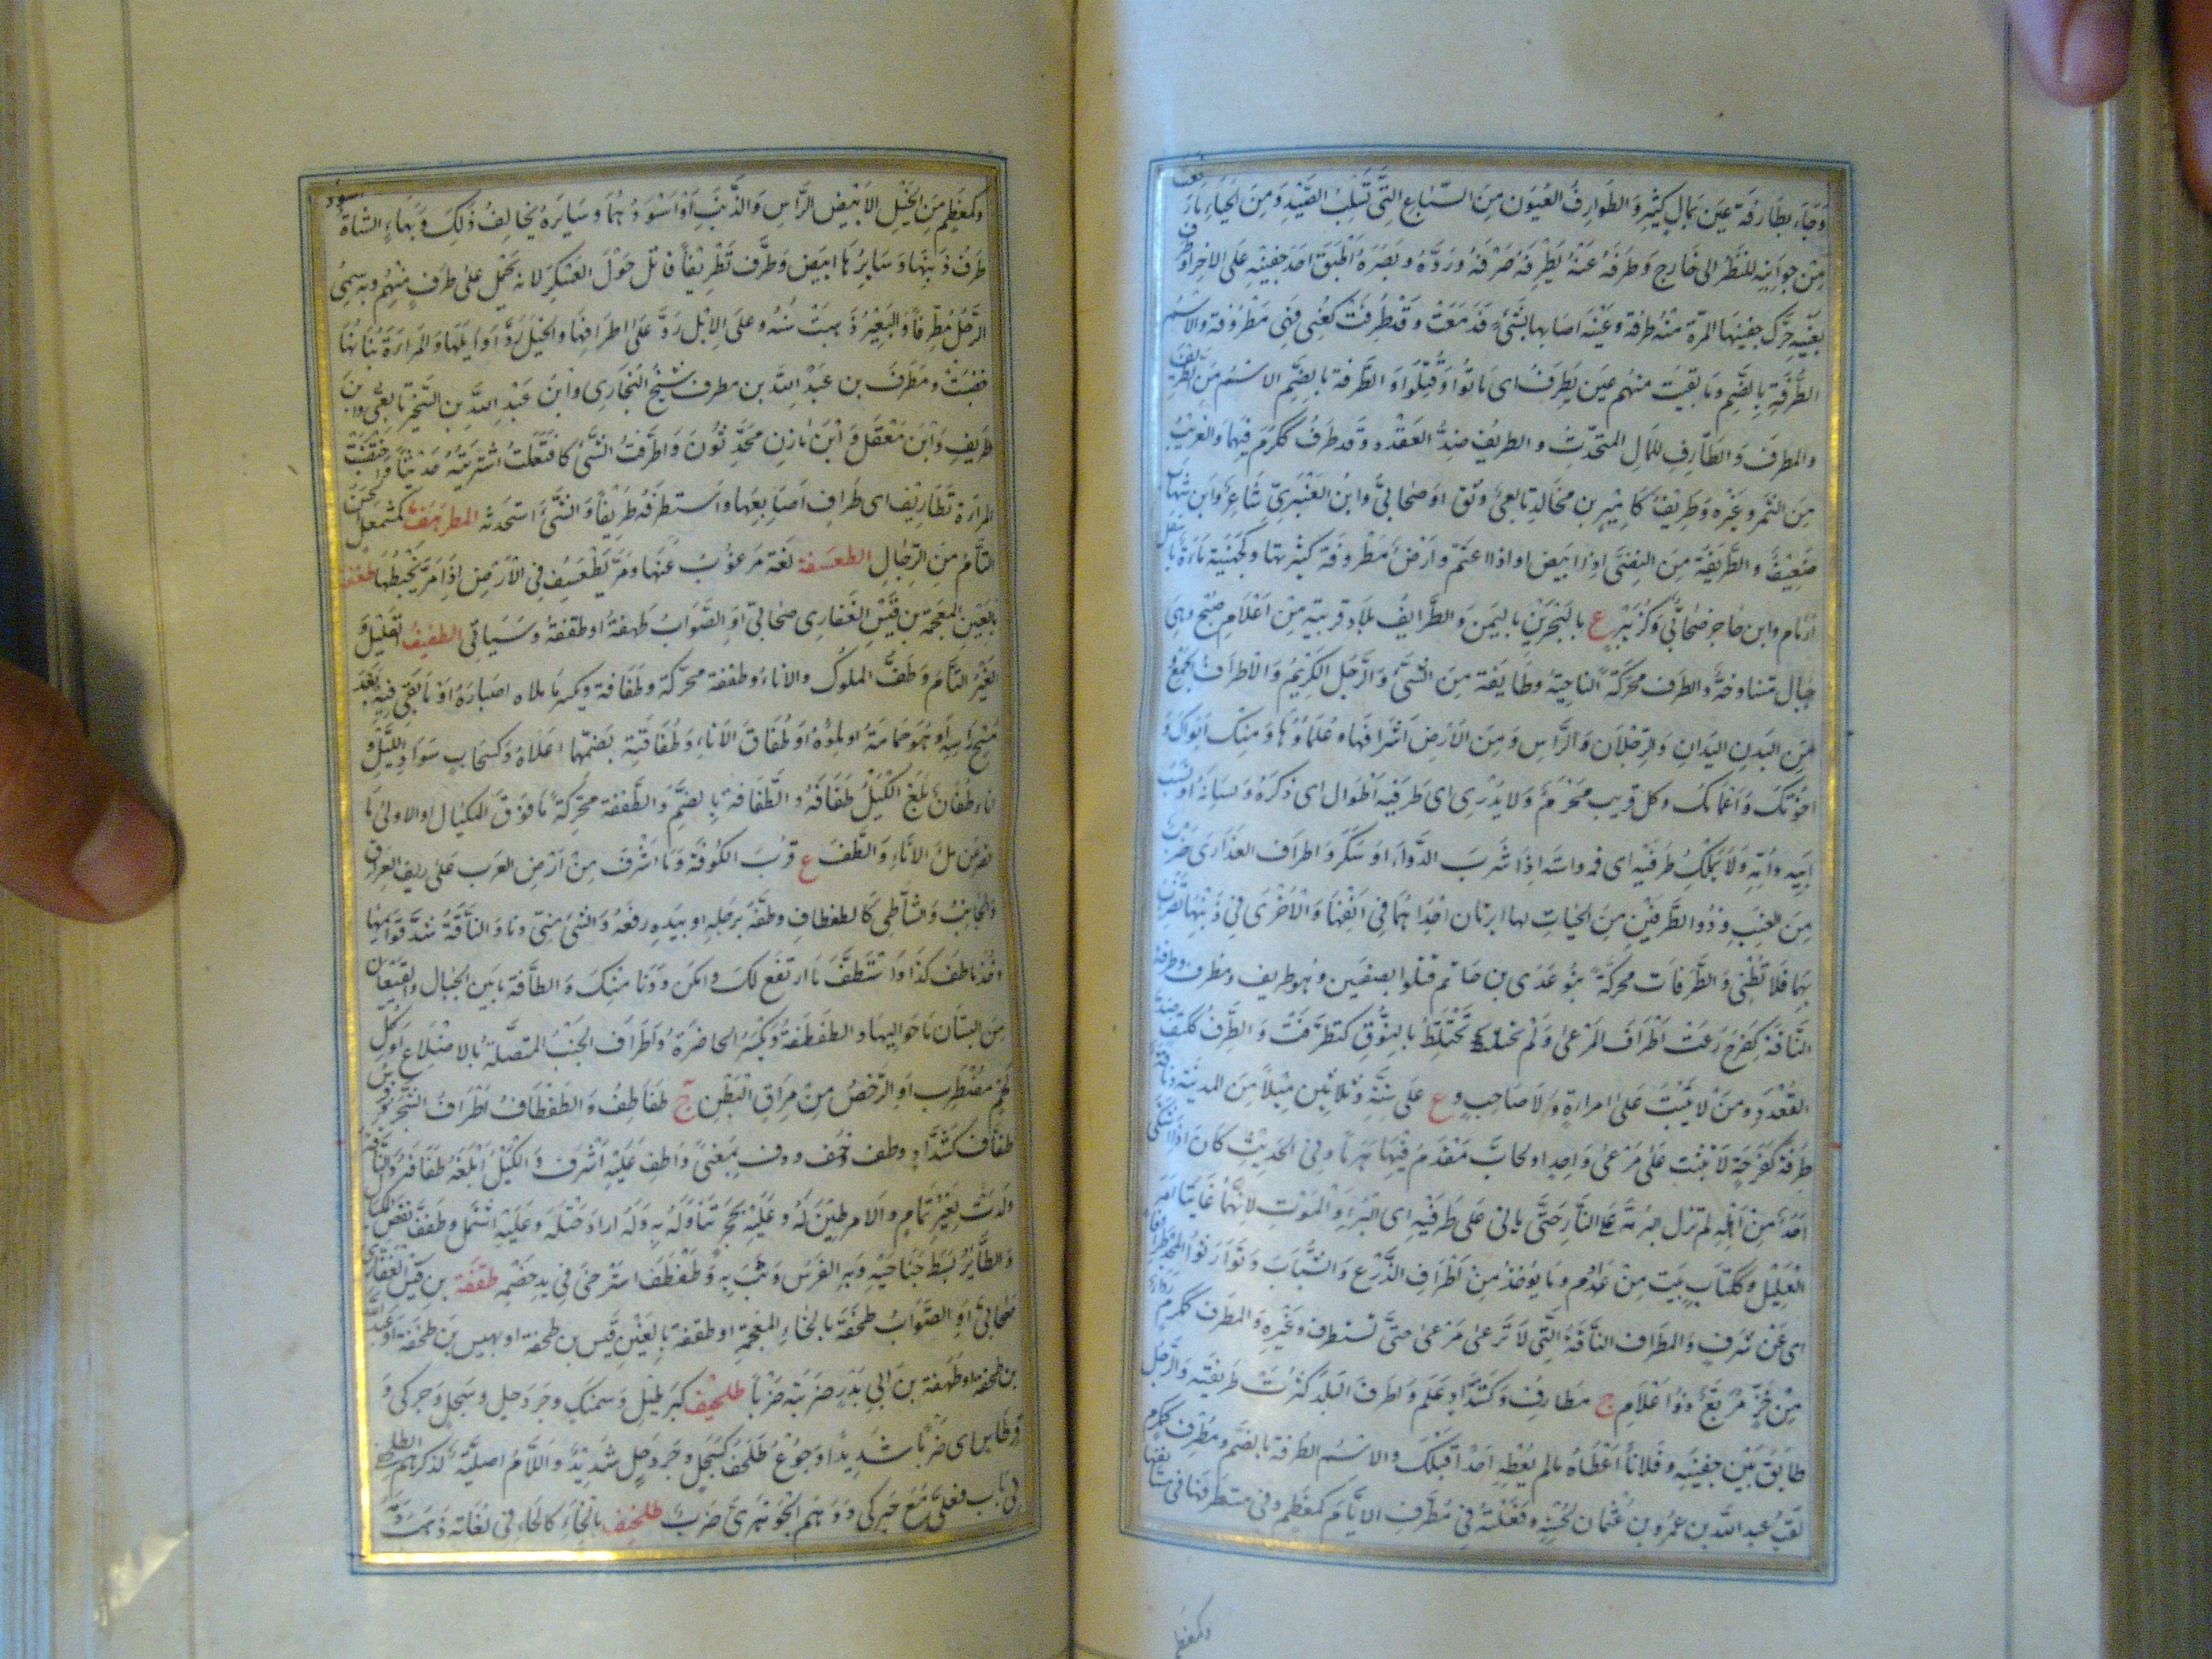 وَجَاءَ بطَارِفَة عَين بَمالٍ كثيرٍ وَ الطوارِفُ العُيُون مِنَ السّباعِ التِى تَسلِبُ الصَّيْدَ وَ مِنَ الخِباءِ مَا رَفعت
مِنْ جوانِبِه للنّظَر الى خَارِج وَ طَرَفَهُ عَنْهُ يَطْرِفُهُ صَرْفَهُ وَرَدَّهُ و بَصَرهُ اَطبَقَ اَحَد جفنَيْهِ عَلى الاخر اَوْ طرف
بعَينهِ حَرَّكَ جفنَيْهَا المَرّة مِنْهُ طرفة وَ عَيْنَه اَصابها بشَىْءٍ فَدَمَعَتْ وَ قدْ طُرِفَتْ كَعُنِى فَهِى مَطْرُوفة والاسم
الطُّرْفَةِ بالضّم وَ مَا بَقيَت منهُم عَين تَطْرِفُ اى مَاتُوا وَ قُتِلُوا وَ الطُّرفة بالضّم الاسْمُ مِنَ الطريف
والمطرف وَ الطّارِفِ للمَال المُتَحدّثِ و الطريف ضِدُّ القعْدد وَ قد طَرُفَ ككرُمَ فيهما وَ الغريبُ
مِنَ الثّمر و غَيْره وَ طَرِيْف كَامِيْرِ بن مخالِد تابِعىّ وثق اَوْ صَحابىّ وَ ابْنُ العَنْبَرِىّ شاعِر وَ ابن شهاب
ضَعِيْف و الطَّرِيفَة مِنَ النِّصِىّ اِذَا ابيَض او اذا اعتَمّ و اَرْضٌ مَطْروفَة كثيرتها وَ كجُهَيْنة مَاءَة باسفل
اَرمَام و ابن حَاجِر صَحابىّ وَ كزُبَيْر ع بالبَحْرَيْن باليَمن وَ الطَّرايفُ بلاد قريبة مِنْ اَعْلَامِ صُبْح وهِىَ
جبال متناوحَة وَ الطرَف محرَّكة النَّاحِيَةُ وَ طَايفة مِنَ الشَّىْءِ وَ الرَّجُل الكَرِيْمُ وَ الاَطرَافُ الجَمْع
مِنَ البَدنِ اليَدانِ وَ الرِّجْلَان وَ الرَّاس وَ مِنَ الاَرْضِ اَشْرافها و عُلَماؤُها وَ مِنْكَ اَبَوَاكَ وَ
اخوتكَ وَ اَعْمَامُكَ و كل قريب مَحْرَم وَ لَا يُدْرِى اى طَرَفيه اَطْوَال اى ذَكَرَهُ وَ لِسَانَهُ اَوْ نسَب
اَبِيهِ و اُمّهِ وَ لَا يَمْلِكُ طَرَفيْه اى فمه و استه اِذَا شَرِبَ الدَّوَاءَ اَوْ سَكَرَ وَ اطراف العَذَارَى ضَرْبٌ
مِنَ العِنَبِ وَ ذُو الطَّرفَيْنِ مِنَ الحيَّات لها ابرتان احْدَاهُما فِى اَنْفِهَا وَ الاُخْرَى فِى ذنَبِهَا تضرب
بِهِمَا فَلَا تُطْنِى وَ الطّرَفات محركَة بَنُو عَدى بن حَاتم قتلُوا بصفّين وَ هُم طريف وَ مطرف وَ طرفة
النَّاقَة كفَرِحَ رَعَتْ اَطْرَافَ المَرْعٰى وَ لَمْ تَخْتَلِطْ بالنُّوْقِ كتطَرَّفَتْ وَ الطَّرِفُ ككتف ضِدّ
القُعْدَدِ وَ مَنْ لَا يَثْبُت عَلى امْراةٍ وَ لَا صَاحِبٍ وَ ع عَلى ستَّةٍ وَ ثلَاثين مِيْلاً مِنَ المدينَة وَ ناقة
طرِفَة كفَرِحَةٍ لَا تَثْبُت عَلى مَرْعى وَاحِدٍ اَوْ تحاتّ مَقْدَمُ فِيْهَا هَرَماً وَ فِى الحَدِيْثِ كَانَ اِذَا اشْتَكى
اَحَدٌ مِنْ اَهْلِهِ لَمْ تزل البُرْمَةُ عَلى النَّارِ حَتّى يَاتى عَلى طرفَيْهِ اى البُرْءِ وَ المَوْتِ لانَّهُمَا غَايَتَا امْر
العَلِيْلِ وَ ككِتَابٍ بَيْت مِنْ اَدَم وَ مَا يُؤخَذُ مِنْ اَطْرَافِ الزَّرْع وَ السِّبَابَ وَ تَوَارَثُوا المَجْدَ طِرَافاً
اى عَنْ شَرَفٍ وَ المطراف النَّاقَةُ التِى لَا تَرْعٰى مَرْعىً حتَّى تَسْتَطْرف غَيْرهُ وَ المطرَف ككرم رداء
مِنْ خَزّ مُربَّع ذُوْ اَعْلَام ج مَطارِفُ وَ كَشَدَّادٍ عَلَم وَ اطرَفَ البَلَدُ كَثُرَت طَرِيفَتُه وَ الرَّجُل
طَابَقَ بَيْن جفنَيهِ وَ فُلَاناً اَعْطَاهُ مالم يُعْطِهِ اَحَداً قَبلَكَ و الاسْم الطُّرفة بالضّم و مُطْرِف كمكرم
لَقَبُ عبد اللّه بن عمرو بن عُثمان لحُسْنِهِ وَ فَعَلْتُهُ فِى مُطَّرَفِ الايَّام كمعظَم وَ فى مستطرفها فى مستانفها
وكمعظم
وكمعظَمٍ مِنَ الخَيْلِ الاَبيَض الرَّاس وَ الذَّنَب اَوْ اَسْوَدُهُمَا وَ سَايِرهُ يُخَالِفُ ذلِكَ وَ بهَاء الشّاة اسود
طَرَفُ ذَنبِهَا وَ سَايِرُهَا ابيض وَ طَرَّفَ تَطْرِيْفاً قاتل حَوْلَ العَسْكَرِ لانه يَحْمِل عَلى طرَفٍ مِنْهُم و به سُمِّىَ
الرَّجُلُ مُطَرِّفاً وَ البَعِيْرُ ذَهبَتْ سنُّهُ وَ عَلى الابِل رَدَّ عَلَى اطرَافِهَا وَ الخَيْلَ رَدَّ اَوَايِلَهَا وَ المَرْاَة بَنَانَهَا
خضبَتْ وَ مطرّف بن عَبْد اللّه بن مطرف شيخُ البُخَارِى وَ ابْنُ عَبْدِ اللّه بن الشّخّير تابعىّ وابن
طَريفٍ وَ ابْن مَعْقل وَ ابْنُ مازِنٍ مُحَدِّثُونَ وَ اطَّرَفْتُ الشَّىْءَ كافتَعَلْتُ اشْتَريتُهُ حَدِيْثاً وَ اختضبَت
المرْاَةُ تَطَارِيْفَ اى طَرَاف اَصَابِعِهَا وَ اسْتطرَفَهُ طرِيفاً وَ الشَّىْءَ اسْتَحْدَثَهُ المطرَهِفّ كمشمَعِلّ الحسن
التَّامُّ مِنَ الرّجالِ الطعسَفة لغة مَرغوب عَنْها وَ مَرَّ يُطَعْسِفُ فِى الاَرْضِ اِذَا مَرَّ يَخْبِطُهَا طغفة
بالغين المعجمة بن قَيْس الغفارى صحابىّ اَوِ الصَّوَابُ طهفة او طقفة وَ سَيَاتِى الطفيفُ القلِيْل وَ
الغَيْرُ التامّ وَ طَفُّ المكّوك و الاناءِ وَ طففه محَرَّكة وَ طفَافَه وَ يكسر مَا ملاء اَصْبَارَهُ اَوْ مَا بَقِىَ فِيْهِ بَعْدَ
مَسْحِ رَاسِهِ اَوْ هُوَ جمامهُ او مِلْؤُهُ وَ طُفَافُ الانَاءِ وَ طُفَافَتِه بضمّهما اعلاه وَ كسَحَابٍ سَوَادُ اللّيْلِ وَ
اناء طفّانُ بَلَغَ الكَيْلُ طفَافَهُ وَ الطُّفَافة بالضّم وَ الطّفَفَة محَرّكة مَا فَوْقَ المكيَال او الاولى مَا
قَصُرَ عَنْ مِلْءِ الاِنَاءِ وَ الطَّفّ ع قُرْبَ الكُوْفَة وَ مَا اَشْرَفَ مِنْ اَرْضِ العَرَب عَلى رِيْفِ العِرَاقِ
وَ الجَانِبُ وَ الشّاطِى كالطفطافِ وَ طَفَّهُ برِجلِهِ اَوْ بيَدِهِ رفعَهُ وَ الشَّىْءُ مِنِّى دنا وَ النَّاقَةَ شدَّ قوَايمهَا
وَ خُذ مَا طَفَّ لَكَ وَ اسْتَطَفَّ مَا ارتفَعَ لكَ وَ امكَن وَ دَنا مِنكَ وَ الطّافَّة مَا بَين الجِبَال وَ القِيعَان
مِنَ البسْتَان مَا حَوَالَيْهَا وَ الطفطفة وَ يُكْسَرُ الخاصِرَةُ وَ اَطرَافُ الجَنْبِ المتصلَة بالاضْلَاعِ اَوْ كل
لَحْمٍ مضْطَرِب اَوِ الرَّخْصُ مِنْ مرَاقّ البَطْنِ ج طفَاطِفُ وَ الطَفْطَافُ اَطْرَافُ الشّجَر وَ فرس
طَفَّاف كشَدَّادٍ وَ طف وَ خف وَ دف بِمَعْنًى وَ اَطَفَّ عَلَيْهِ اَشْرَفَ وَ الكَيْلَ اَبْلَغَهُ طفَافَهُ وَ النَّاقَة
وَلَدَتْ لِغَيْرِ تَمَامٍ وَ الاَمْرَ طبَنَ لهُ وَ عَلَيْهِ بحَجَرٍ تنَاوَلَهُ بِهِ وَ لَهُ ارَادَ ختْلَهُ وَ عَلَيْهِ اشْتَمَلَ وَ طَفّفَ نقَصَ المكيال
وَ الطَّايِرُ بَسَطَ جَنَاحَيْهِ وَ بِهِ الفَرَسُ وَثَبَ بِهِ وَ طَفْطَفَ اسْتَرخى فِى يدِ خَصْمِهِ طقفَة بن قَيْس الغِفَارِى
صَحابىّ اَوِ الصَّوَابُ طخفَة بالخاءِ المعْجَمةِ او طغفَة بالغين او قيس بن طخفَة او يعيش بن طخفَة او عبد اللّه
بن طخفة او طهفة بن اَبِى ذر ضَرَبَه ضَرْباً طلحيفا كبَرْطِيْل وَ سِمَنْدٍ وَ جِرْدَحْل وَ سبَحلٍ وَ حَبَركى وَ
قرْطَاسٍ اى ضَرْباً شدِيداً وَ جُوْع طلحف كسبَحلٍ وَ جردَحلٍ شدِيْد وَ اللَّام اصليّة لذكرهم الطلحف
فِى بَاب فعلى مَعَ حَبَركى وَ وَهمَ الجَوْهَرى ضَرْب طلخيف بالخاءِ كالحاءِ فِى لغَاتِهِ ذَهَبَ دمه